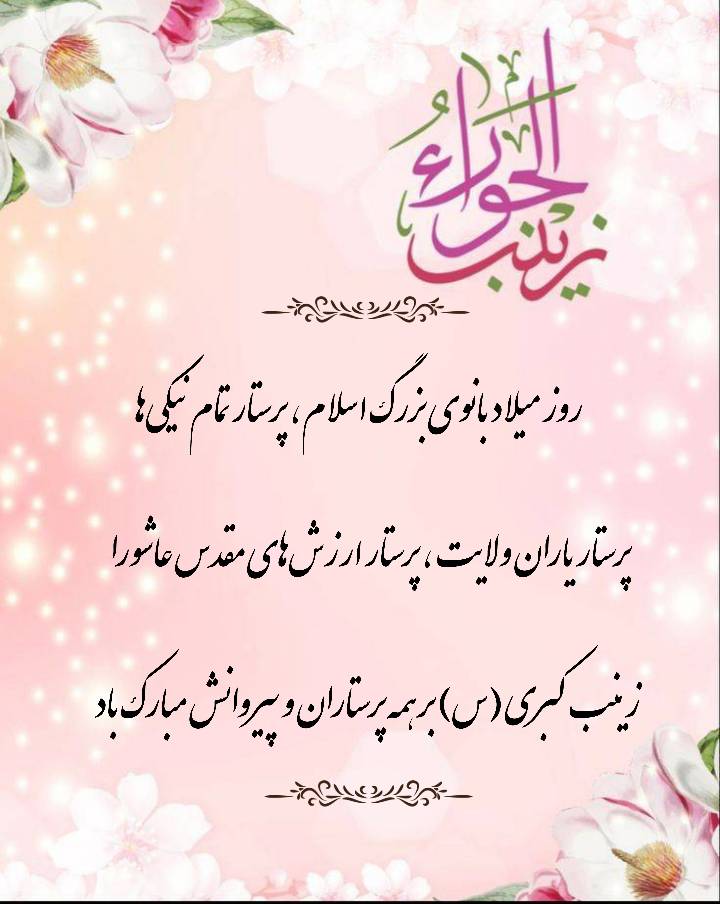 زینب الحوراء
روز میلاد بانوی بزرگ اسلام ، پرستار تمام نیکی ها
پرستار یاران ولایت ، پرستار ارزش های مقدس عاشورا
زینب کبری (س) بر همه پرستاران و پیروانش مبارک باد